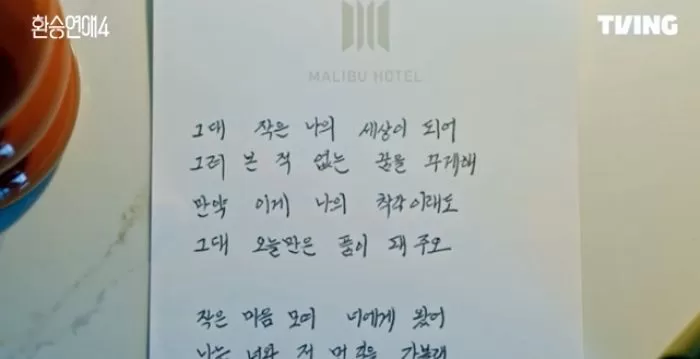 환승연애4
TVING
MALIBU HOTEL
그대 작은 나의 세상이 되어
그려 본 적 없는 꿈을 꾸게해
만약 이게 나의 착각이래도
그대 오늘만은 품이 돼 주오
작은 마음 모여 너에게 왔어
나는 너와 저 먼 곳을 가볼래